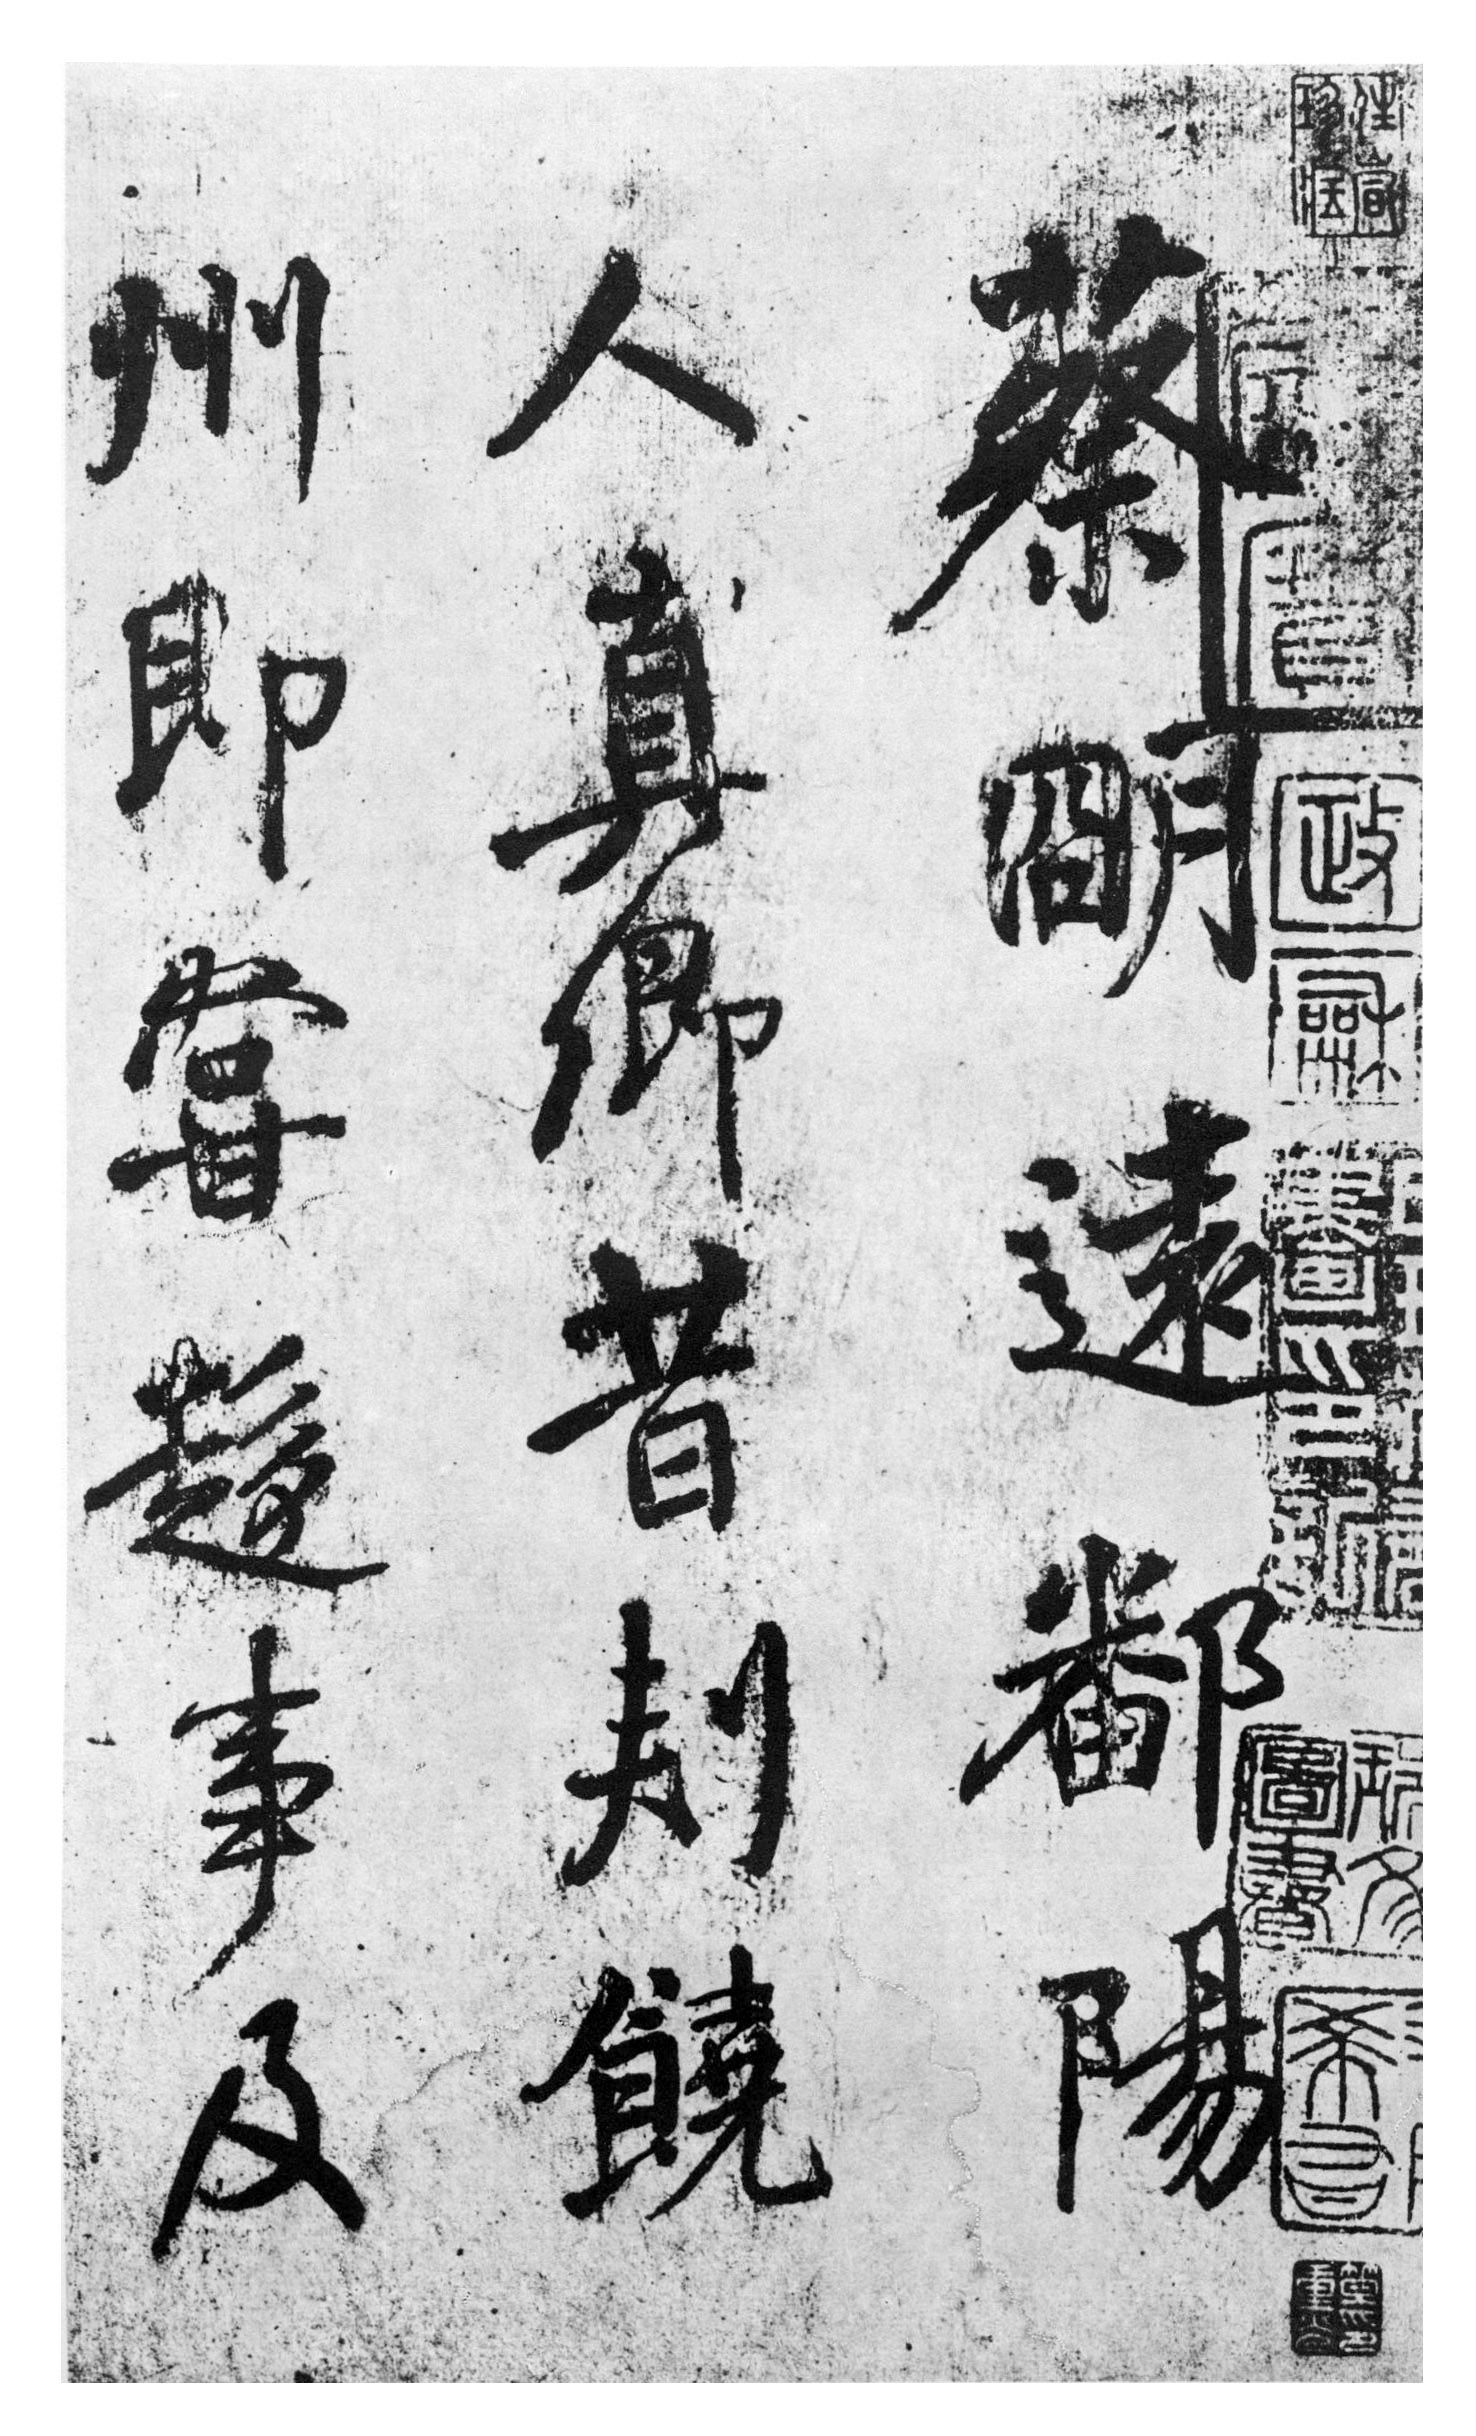 政龢
蔡明遠鄱陽
人真卿昔刾饒
州即嘗趨事及